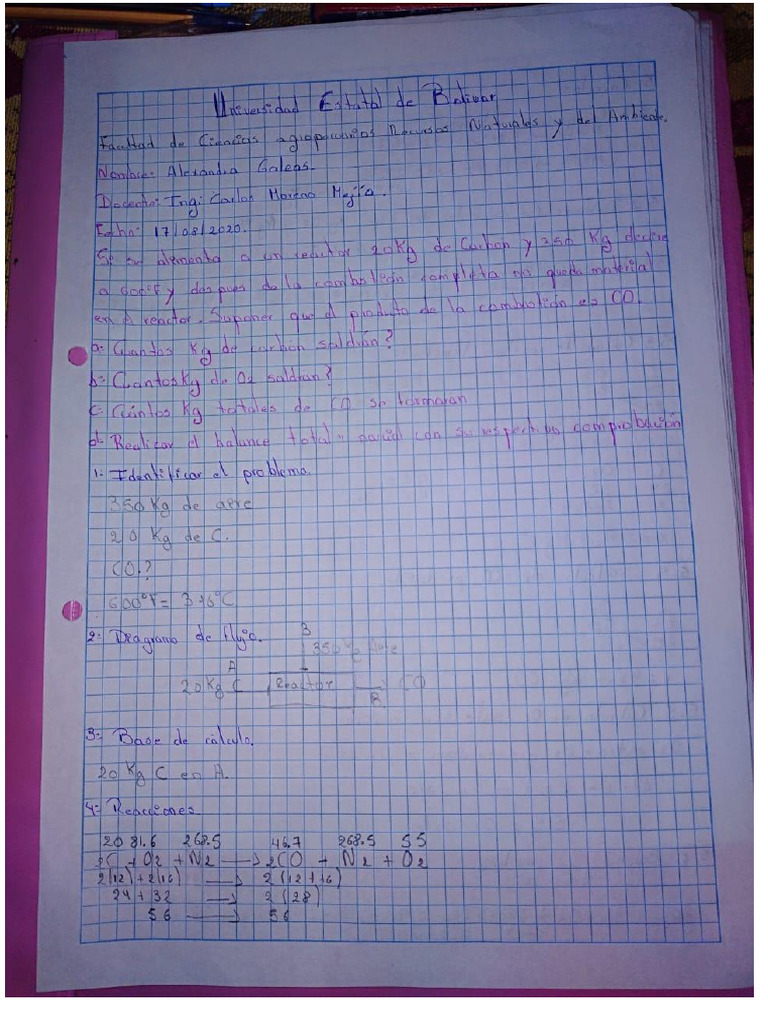 Universidad Estatal de Bolivar
Facultad de Ciencias agropecuarias Recursos Naturales y del Ambiente.
Nombre: Alexandra Galeas.
Docente: Ing: Carlos Moreno Mejia.
Fecha: 17/08/2020.
Si se alimenta a un reactor 20Kg de Carbon y 350 Kg de aire
a 600°F y despues de la combustion completa no queda material
en el reactor. Suponer que el producto de la combustion es CO.
a= Cuantos Kg de carbon saldrán?
b= Cuantos Kg de O2 saldran?
c= Cuántos Kg totales de CO se formaran
d= Realizar el balance total y parcial con su respectiva comprobación
1= Identificar el problema.
350 Kg de aire
20 Kg de C.
CO.?
600°F = 316°C
2= Diagrama de flujo.
B
350 Kg Aire
A
20 Kg C Reactor CO
3= Base de calculo.
20 Kg C en A.
4= Reacciones.
20 81.6 268.5 46.7 268.5 55
2C + O2 + N2 → 2CO + N2 + O2
2(12) + 2(16) → 2(12+16)
24 + 32 → 2(28)
56 → 56